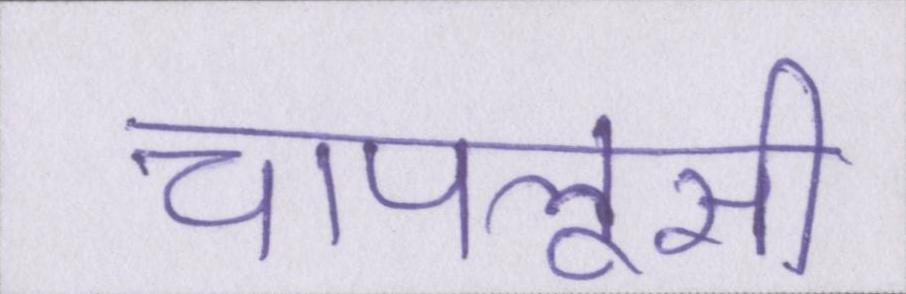 चापलूसी